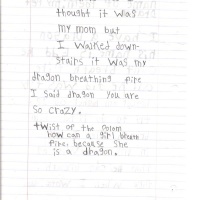 thought it was
my mom but
I walked down-
stairs it was my
dragon breathing fire
I said dragon you are
so crazy.
twist of the Potem
how can a girl breath
fire, because she
is a dragon.